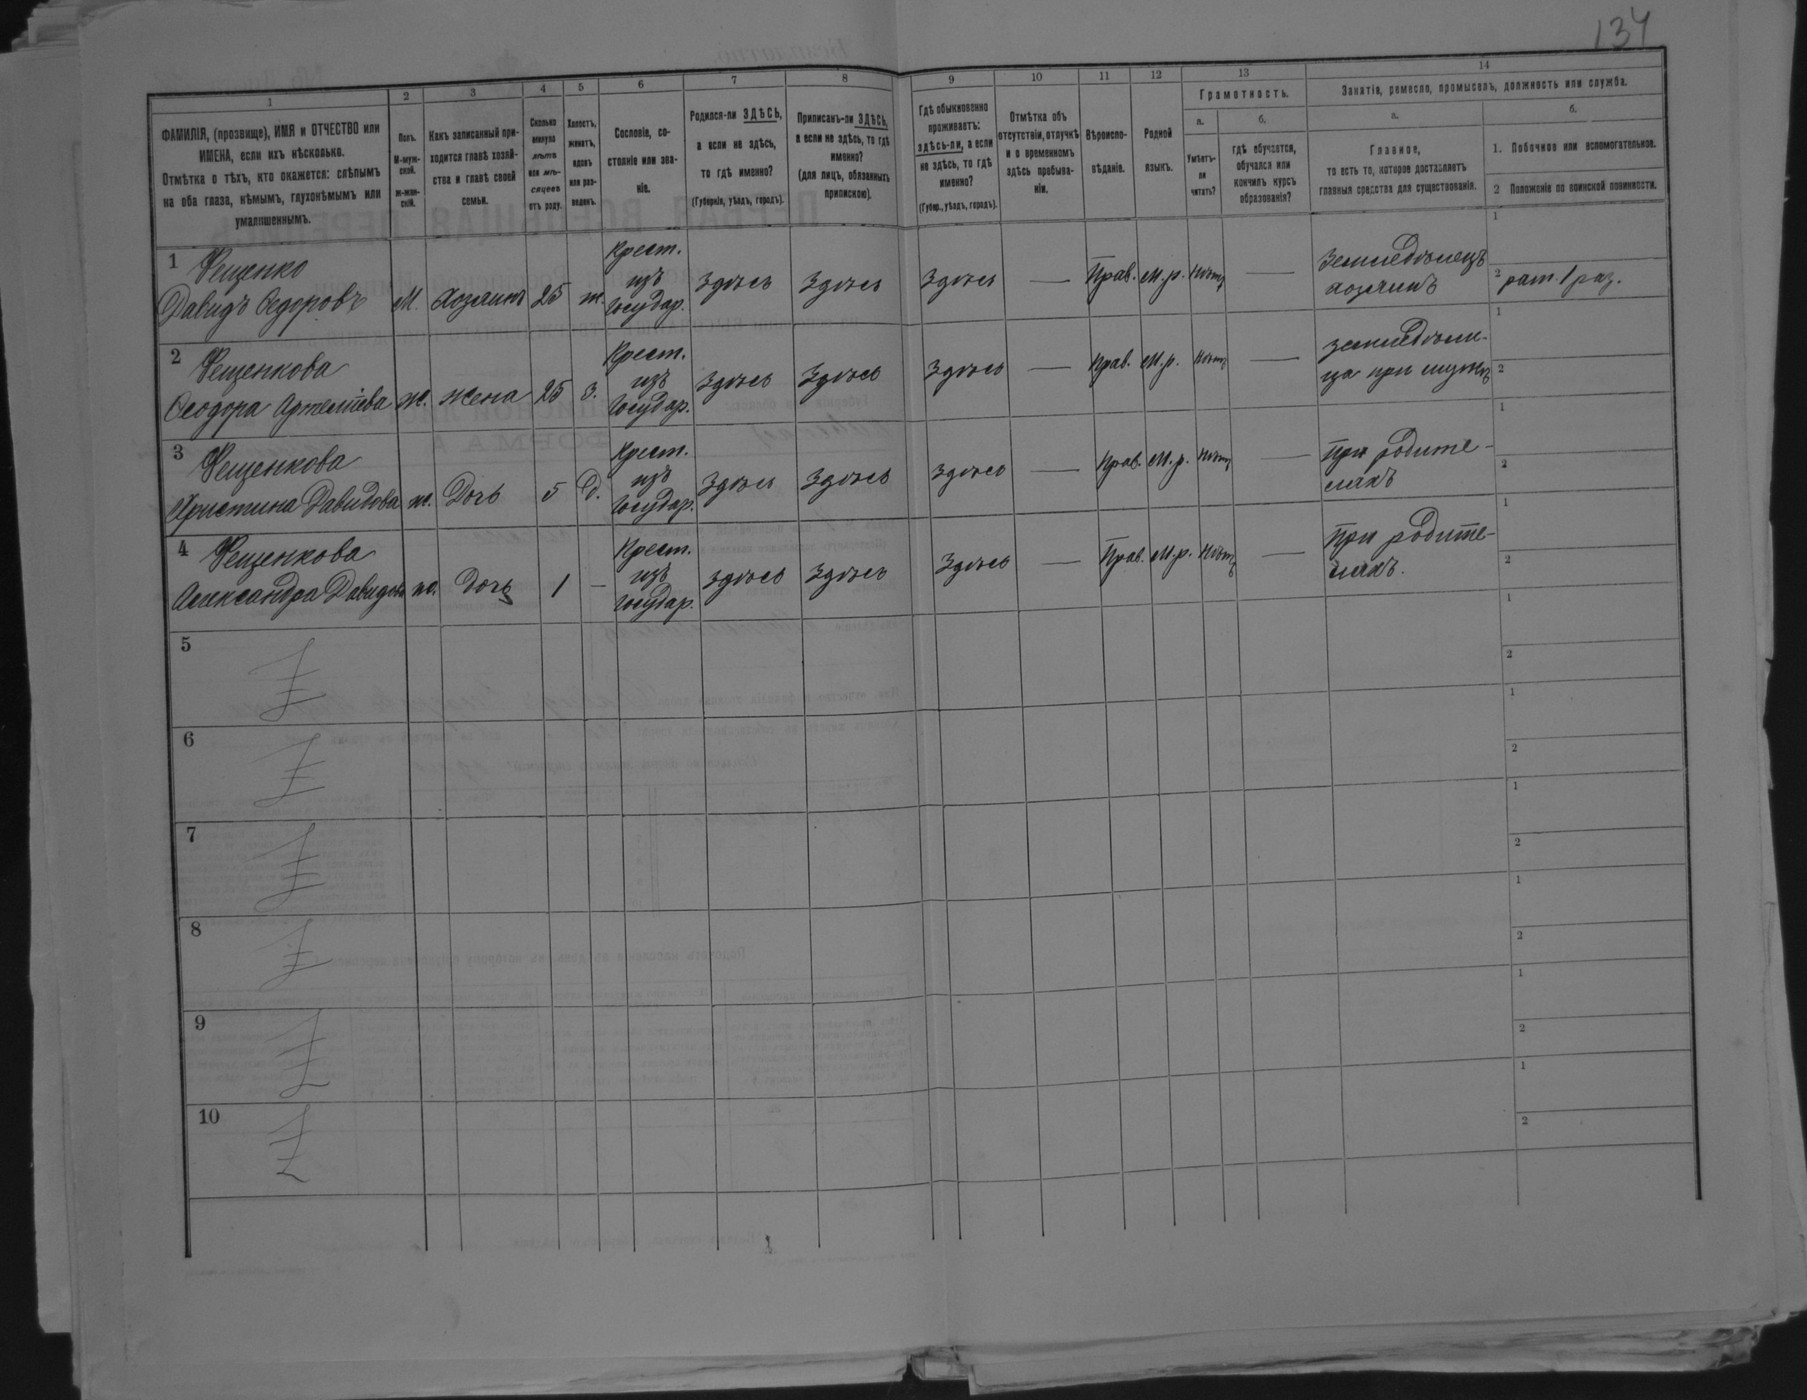 134
1
2
3
4
5
6
7
8
9
10
11
12
13
14
ФАМИЛІЯ, (прозвище), ИМЯ и ОТЧЕСТВО или
ИМЕНА, если ихъ нѣсколько.
Отмѣтка о тѣхъ, кто окажется: слѣпымъ
на оба глаза, нѣмымъ, глухонѣмымъ или
умалишеннымъ.
Полъ.
М-муж-
ской.
Ж-жен-
скій.
Какъ записанный при-
ходится главѣ хозяй-
ства и главѣ своей
семьи.
Сколько
минуло
лѣтъ
или мѣ-
сяцевъ
отъ роду.
Холостъ,
женатъ,
вдовъ
или раз-
веденъ.
Сословіе, со-
стояніе или зва-
ніе.
Родился-ли ЗДѢСЬ,
а если не здѣсь,
то гдѣ именно?
(Губернія, уѣздъ, городъ).
Приписанъ-ли ЗДѢСЬ,
а если не здѣсь, то гдѣ
именно?
(для лицъ, обязанныхъ
припискою).
Гдѣ обыкновенно
проживаетъ:
здѣсь-ли, а если
не здѣсь, то гдѣ
именно?
(Губер., уѣздъ, городъ).
Отмѣтка объ
отсутствіи, отлучкѣ
и о временномъ
здѣсь пребыва-
ніи.
Вѣроиспо-
вѣданіе.
Родной
языкъ.
Грамотность.
а.
б.
Умѣетъ-
ли
читать?
гдѣ обучается,
обучался или
кончилъ курсъ
образованія?
Занятіе, ремесло, промыселъ, должность или служба.
а.
б.
Главное,
то есть то, которое доставляетъ
главныя средства для существованія.
1. Побочное или вспомогательное.
2 Положеніе по воинской повинности.
1
Давидъ Ѳедоровъ
М.
Хозяинъ
25
ж.
Крест.
изъ
Государ.
Здѣсь
Здѣсь
Здѣсь
—
Прав.
М.р.
Нѣтъ
—
Земледѣлецъ
хозяинъ
1
2
рат. 1 раз.
2
ж.
Жена
25
З.
Крест.
изъ
Государ.
Здѣсь
Здѣсь
Здѣсь
—
Прав.
М.р.
Нѣтъ
—
ца при мужѣ
1
2
3
Христина Давидова
ж.
Дочь
5
д.
Крест.
изъ
Государ.
Здѣсь
Здѣсь
Здѣсь
—
Прав.
М.р.
Нѣтъ
—
При родите-
ляхъ
1
2
4
Александра Давидов
ж.
Дочь
1
—
Крест.
изъ
Государ.
Здѣсь
Здѣсь
Здѣсь
—
Прав.
М.р.
Нѣтъ
—
При родите-
ляхъ.
1
2
5
1
2
6
1
2
7
1
2
8
1
2
9
1
2
10
1
2